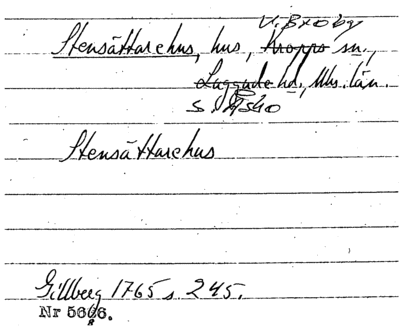 V. Broby
Stensättarehus, hus, Kropps sn.,
Luggude hd., Mhs. län.
S. Åsbo
Stensättarehus
Gillberg 1765 s 245.
Nr 5606.
8